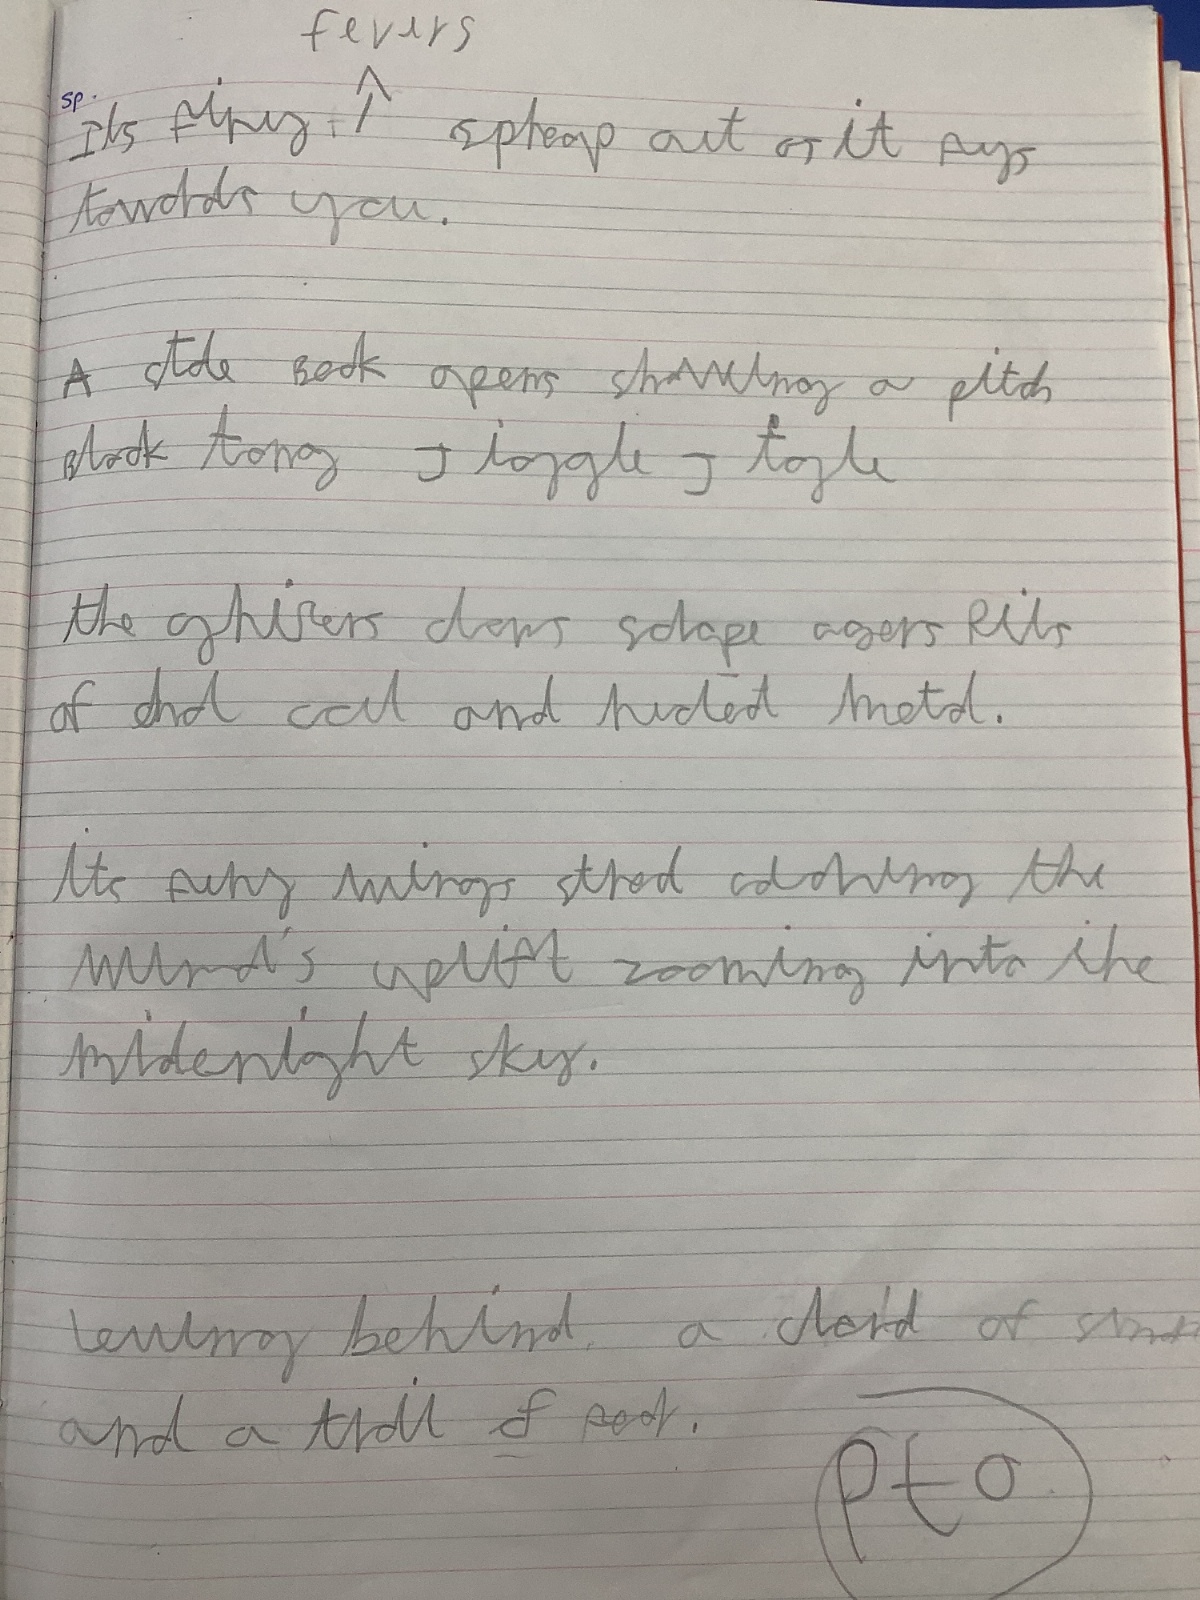 fevers
sp.
Its firey ↑ spreap out as it flys
towards you.
A dide Beak opens showing a pitch
Black tong J joggle J togle
the ghisers claws scrape agers Bits
of and and metal.
Its firey wings stred catching the
wind's uplift zooming into the
midenight sky.
leaving behind a cloud of
and a trail of fear.
pto